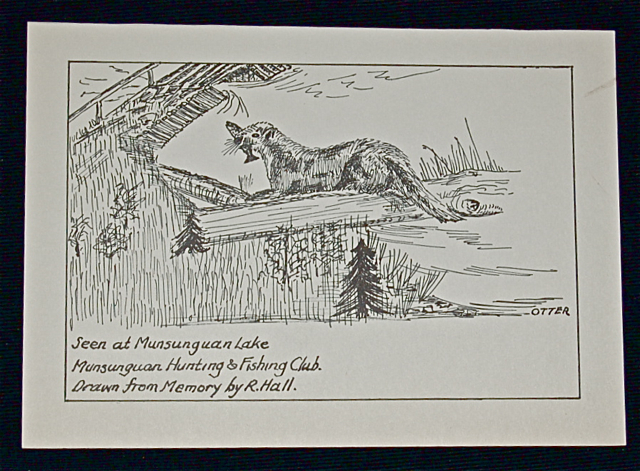 OTTER
Seen at Munsunguan Lake
Munsunguan Hunting & Fishing Club.
Drawn from Memory by R. Hall.